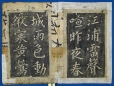 江浦雷聲
喧昨夜春
城雨色動
微寒黃鶯